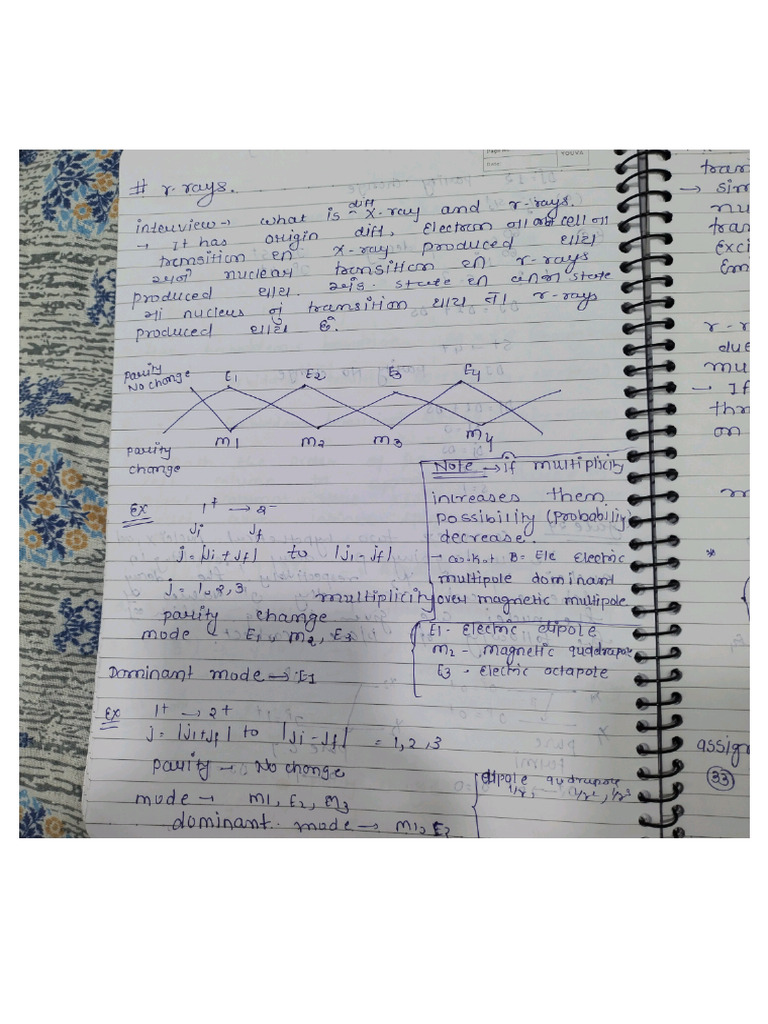 # r-rays.
interview → what is diff X-ray and r-rays.
→ It has origin diff, Electron ના
transition થી X-ray produced થાય
અને nuclear transition થી r-rays
produced થાય. state થી state
માં nucleus નું transition થાય તો r-rays
produced થાય છે.
Parity No change E1 E2 E3 E4
Parity change m1 m2 m3 m4
Note → if multiplicity
increases them
possibility (probability)
decrease.
Electric
multipole dominant
over magnetic multipole
Ex 1+ → 2-
Ji Jf
j = |Ji + Jf| to |Ji - Jf|
j = 1, 2, 3 multiplicity
parity change
mode - E1, m2, E3
E1 - Electric dipole
m2 - magnetic quadrapole
E3 - Electric octapole
Dominant mode → E1
Ex 1+ → 2+
j = |Ji+Jf| to |Ji-Jf| = 1, 2, 3
parity → No change
mode → m1, E2, m3
dominant mode → m1, E2
dipole quadrapole
1/r, 1/r², 1/r³
tran
→ sim
nu
tran
Exci
Em
r-r
due
mu
→ If
thr
on
*
E1
assign
33